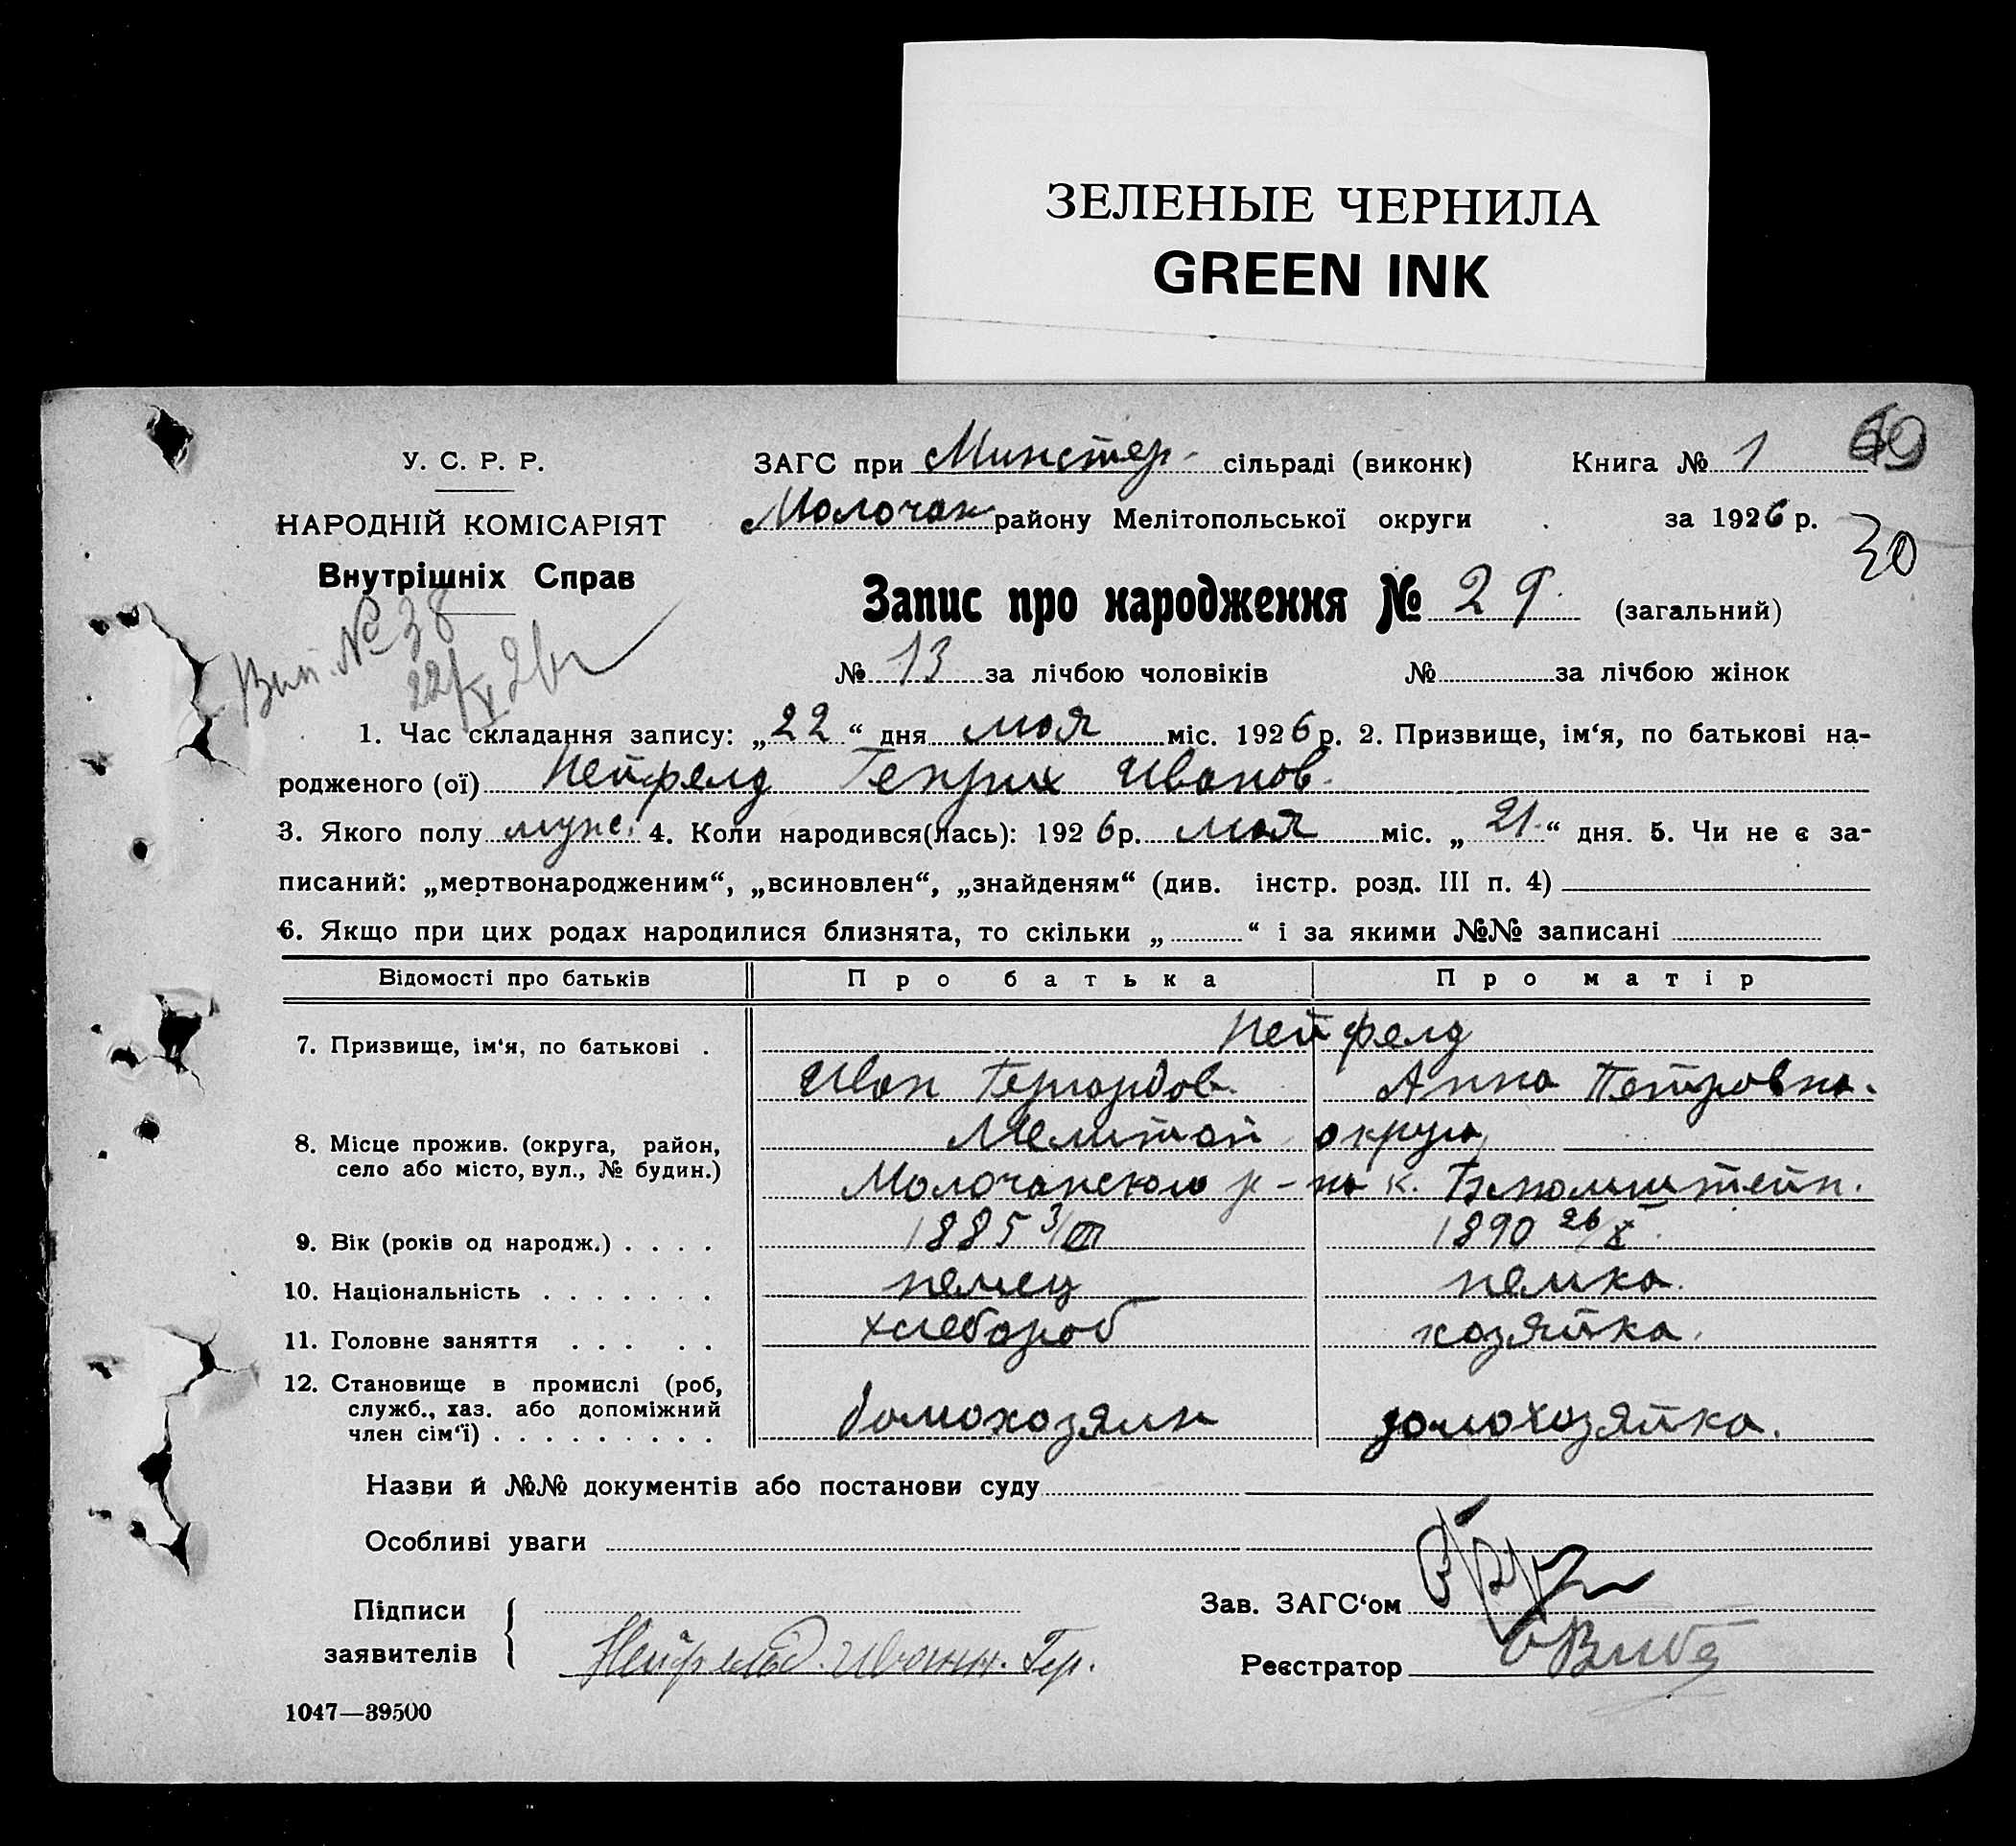 ЗЕЛЕНЫЕ ЧЕРНИЛА
GREEN INK
У. С. Р. Р.
НАРОДНІЙ КОМІСАРІЯТ
Внутрішніх Справ
Вип. № 38
22/V 26 г
ЗАГС при Минстер- сільраді (виконк) Книга № 1
69
Молочан району Мелітопольської округи . за 1926 р.
30
Запис про народження № 29. (загальний)
№ 13 за лічбою чоловіків № за лічбою жінок
1. Час складання запису: „22“ дня мая міс. 1926 р. 2. Призвище, ім‘я, по батькові на-
родженого (ої) Нейфелд Генрих Иванов.
3. Якого полу муже. 4. Коли народився(лась): 1926 р. мая міс. „21.“ дня. 5. Чи не є за-
писаний: „мертвонародженим“, „всиновлен“, „знайденям“ (див. інстр. розд. III п. 4)
6. Якщо при цих родах народилися близнята, то скільки „ “ і за якими №№ записані
Відомості про батьків Про батька Про матір
7. Призвище, ім‘я, по батькові . Нейфелд
Иван Гергардов. Анна Петровна.
8. Місце прожив. (округа, район, Мелитоп округа,
село або місто, вул., № будин.) Молочанского р-на к. Блюмштейн.
9. Вік (років од народж.) . . . . 1885 3/III 1890 26/X.
10. Національність . . . . . . . немец немка.
11. Головне заняття . . . . . хлебороб хозяйка.
12. Становище в промислі (роб,
служб., хаз. або допоміжний
член сім‘ї) . . . . . . . . . домохозяин домохозяйка.
Назви й №№ документів або постанови суду
Особливі уваги
Підписи
заявителів
Нейфельд. Иванн. Гер.
Зав. ЗАГС‘ом
Реєстратор
1047—39500